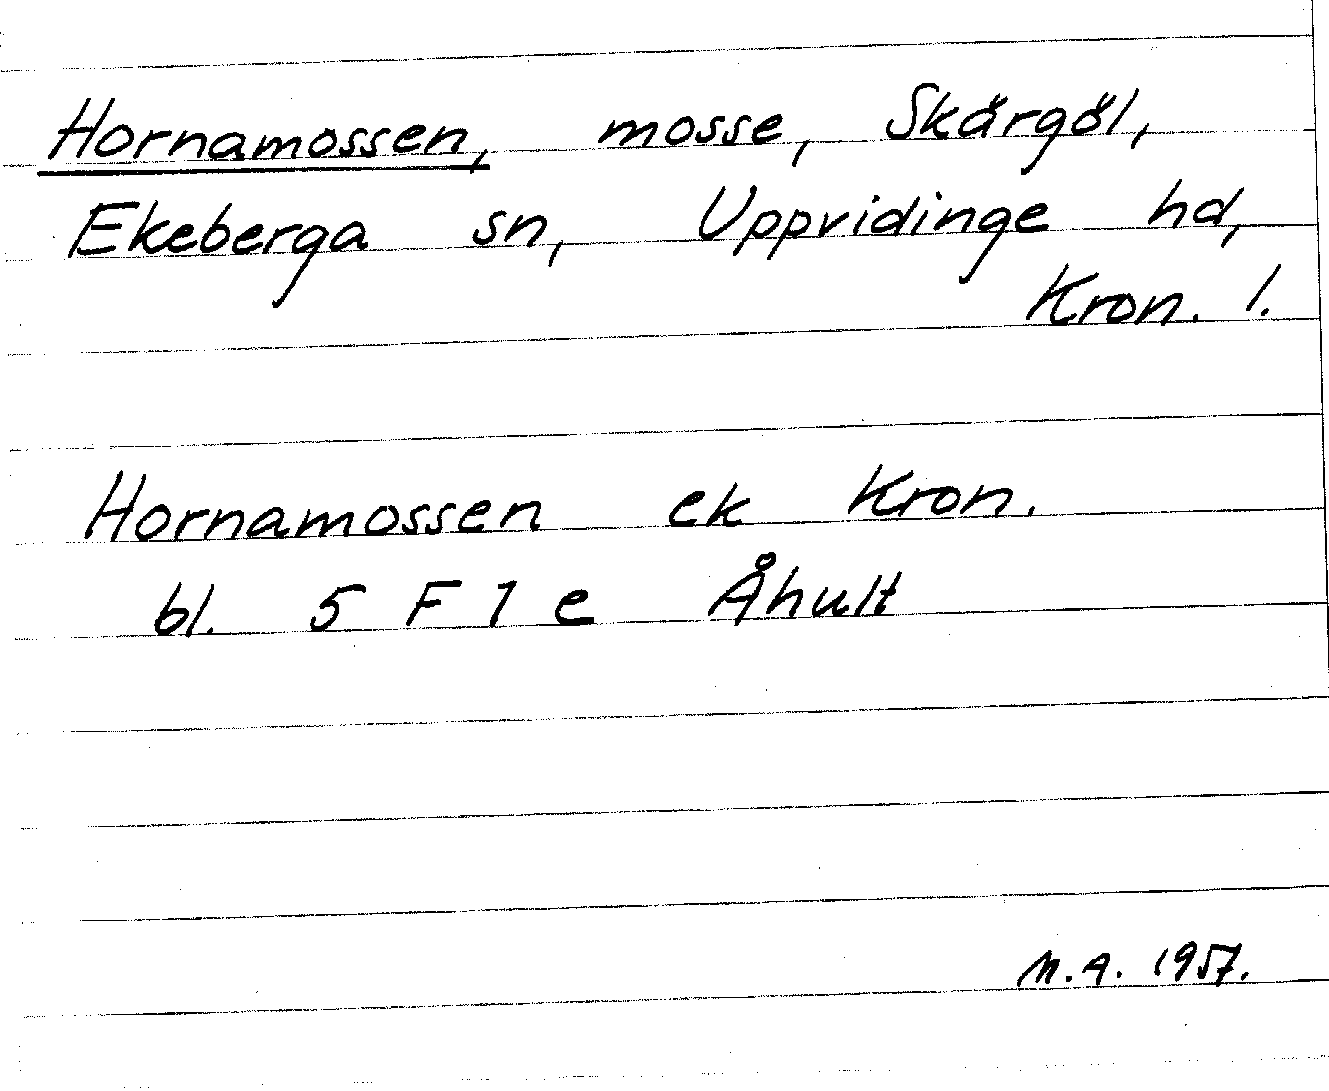 Hornamossen, mosse, Skärgöl,
Ekeberga sn, Uppvidinge hd,
Kron. l.
Hornamossen ek Kron.
bl. 5 F 1 e Åhult
M.A. 1957.